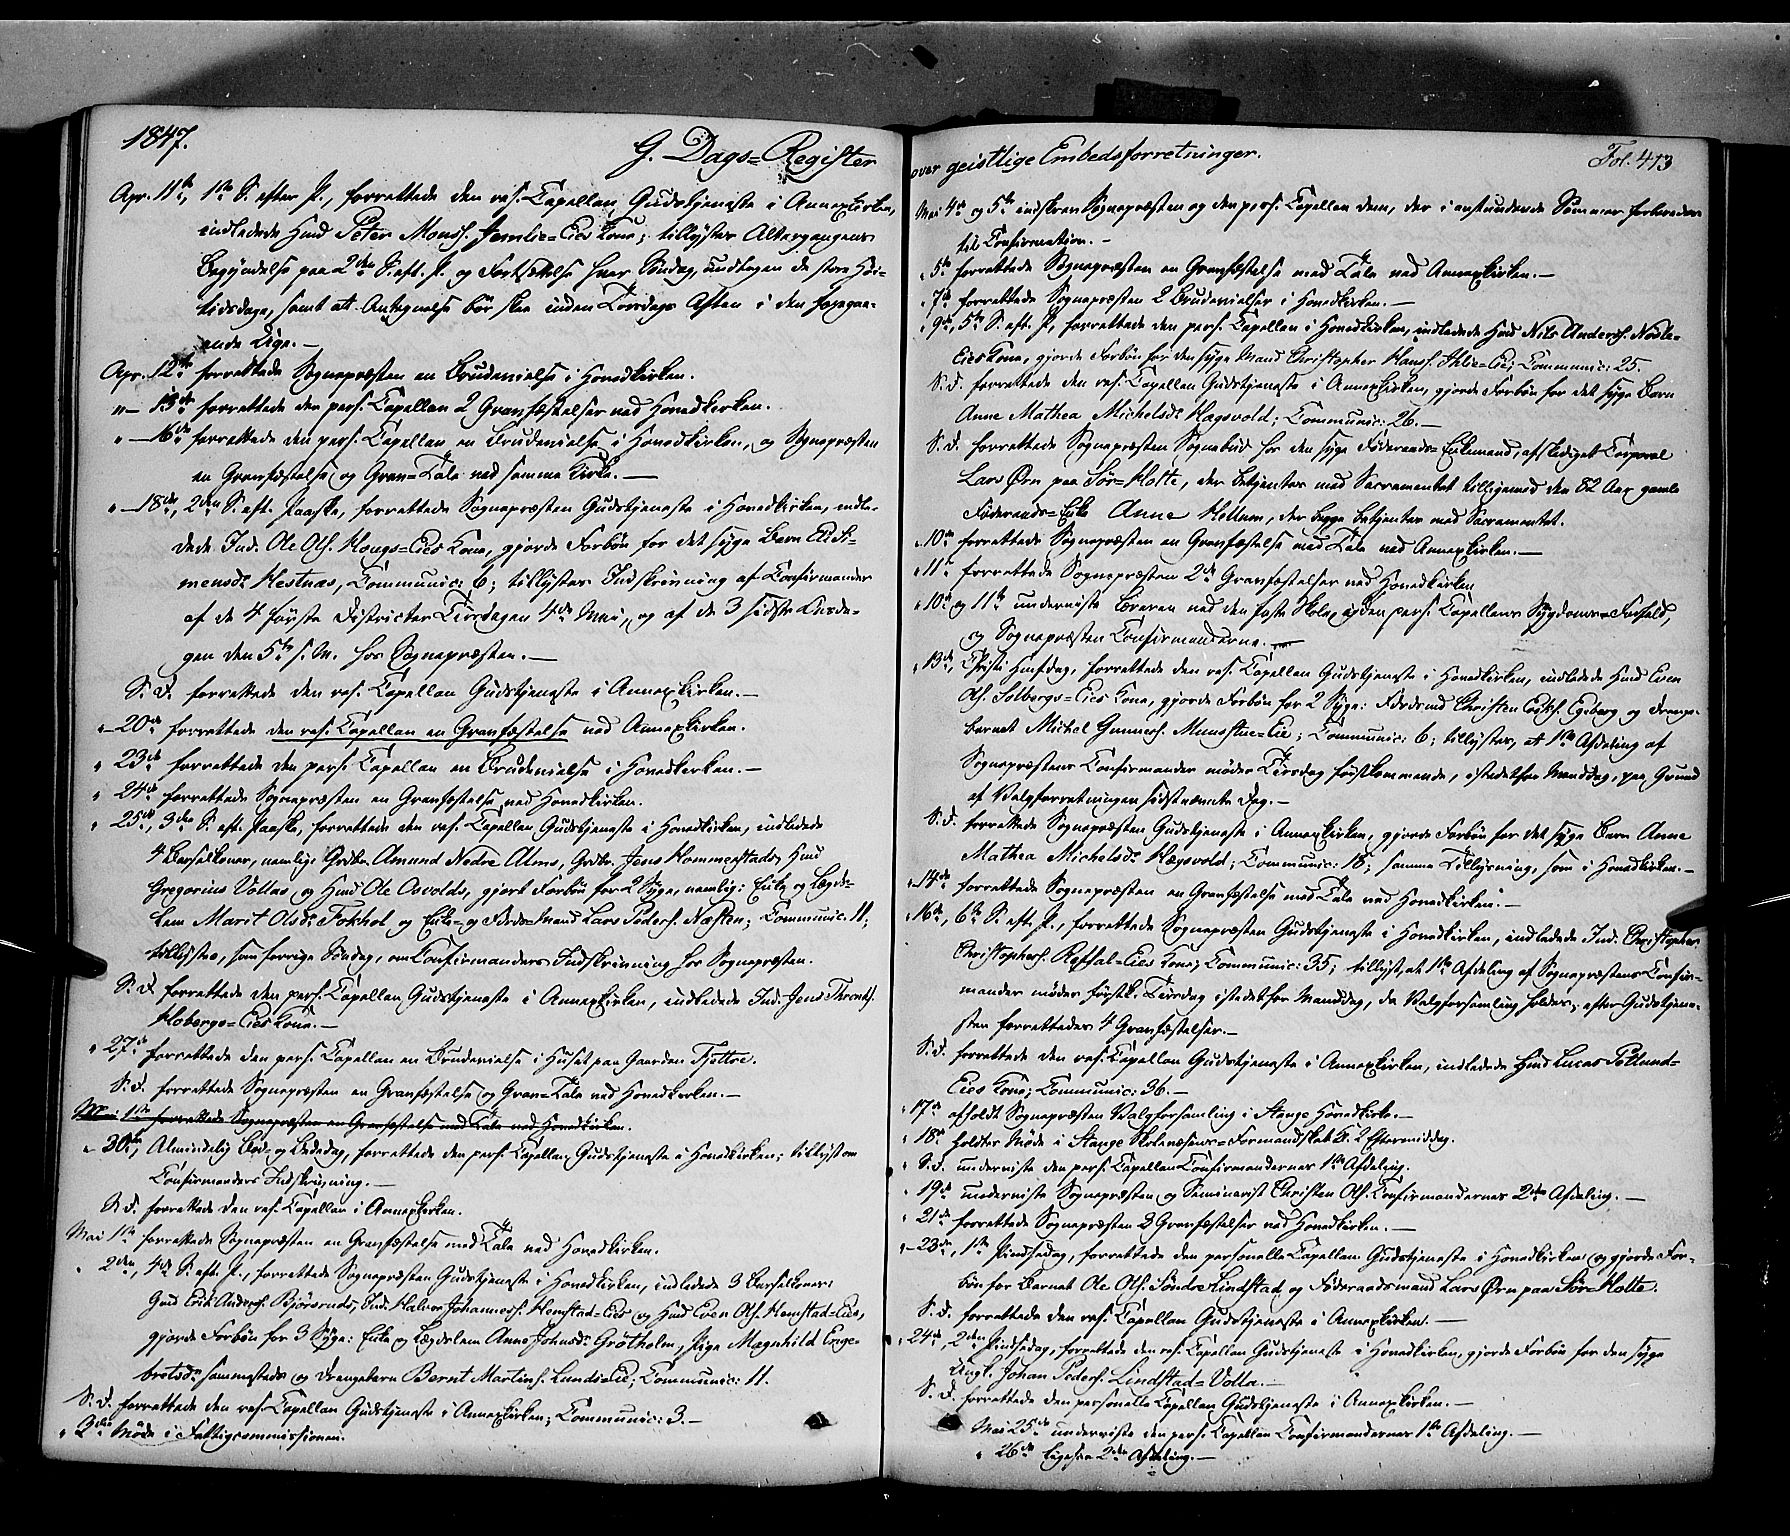 1847.
G. Dags=Register
Apr. 11te, 1ste S. efter P., forrettede den res. Capellan Gudstjeneste i Annexkirken,
indledede Hmd Peter Monss. Jemlie=Eies Kone; tillystes Altergangens
Begyndelse paa 2den S. eft. P. og Fortsættelse hver Søndag, undtagen de store Høi-
tidsdage, samt at Antegnelse bør skee inden Torsdags Aften i den foregaa-
ende Uge.—
Apr. 12te forrettede Sognepræsten en Brudevielse i Hovedkirken.
"— 13de forrettede den pers. Capellan 2 Gravfæstelser ved Hovedkirken.
"—16de forrettede den pers. Capellan en Brudevielse i Hovedkirken, og Sognepræsten
en Gravfæstelse og Grav=Tale ved samme Kirke.—
"—18de, 2den S. eft. Paaske, forrettede Sognepræsten Gudstjeneste i Hovedkirken, indle-
dede Ind. Ole Ols. Hougs=Eies Kone, gjorde Forbøn for det syge Barn
mensdr Hestnæs, Communic: 6; tillystes Indskrivning af Confirmander
af de 4 første Districter Tirsdagen 4de Mai, og af de 3 sidste Onsda-
gen den 5te s. M. hos Sognepræsten.—
S. d. forrettede den res. Capellan Gudstjeneste i Annexkirken.—
"—20de forrettede den res. Capellan en Gravfæstelse ved Annexkirken.
" 23de forrettede den pers. Capellan en Brudevielse i Hovedkirken.—
" 24de forrettede Sognepræsten en Gravfæstelse ved Hovedkirken.
" 25de, 3die S. eft. Paaske, forrettede den res. Capellan Gudstjeneste i Hovedkirken, indledede
4 Barselkoner, nemlig: Grdbr. Amund Nedre Alms, Grdbr. Jens Hommerstads, Hmd
Gregorius Vollas, og Hmd Ole Osvolds, gjort Forbøn for 2 Syge, nemlig: Enke og Lægds-
lem Marit Olsdr Fokhol og Enke= og Førds=Mand Lars Peders. Næsten; Communic: 11;
tillystes, som forrige Søndag, om Confirmanders Indskrivning hos Sognepræsten.
S. d. forrettede den pers. Capellan Gudstjeneste i Annexkirken, indledede Ind. Jens Thronds.
Hobergs=Eies Kone.—
" 27de forrettede den pers. Capellan en Brudevielse i Huset paa Gaarden Fjettre.
S. d. forrettede Sognepræsten en Gravfæstelse og Grav=Tale ved Hovedkirken.—
Mai 1ste forrettede Sognepræsten en Gravfæstelse med Tale ved Hovedkirken.
"—30te, Almindelig Bods- og Bededag, forrettede den pers. Capellan Gudstjeneste i Hovedkirken; tillyst om
Confirmanders Indskrivning.—
S. d. forrettede den res. Capellan i Annexkirken.
Mai 1ste forrettede Sognepræsten en Gravfæstelse med Tale ved Hovedkirken.
" 2den, 4de S. eft. P., forrettede Sognepræsten Gudstjeneste i Hovedkirken, indledede 3 Barselkoner:
Gmd Erik Anders. Bjørsruds, Ind. Halvor Johanness. Hemstad=Eies og Hmd Even Ols. Hemstad=Eies,
gjorde Forbøn for 3 Syge: Enke og Lægdslem Anne Johnsdr Grøtholm, Pige Magnhild Enge-
bretsdr sammesteds og Drengebarn Bernt Martin s. Lunds=Eie; Communic: 11.
S. d. forrettede den res. Capellan Gudstjeneste i Annexkirken; Communic: 3.—
" 3die Møde i Fattigcommissionen.
over geistlige Embedsforretninger.
Fol. 413
Mai 4de og 5te indskrev Sognepræsten og den pers. Capellan dem, der i anstundende Sommer forberedes
til Confirmation.—
" 5te forrettede Sognepræsten en Gravfæstelse med Tale ved Annexkirken.—
" 7de forrettede Sognepræsten 2 Brudevielser i Hovedkirken.—
" 9de, 5te S. eft. P., forrettede den pers. Capellan i Hovedkirken, indledede Hmd Nils Anders. Nøsle-
Eies Kone, gjorde Forbøn for den syge Mand Christopher Hanss. Ihlie=Eie; Communic: 25.
S. d. forrettede den res. Capellan Gudstjeneste i Annexkirken, gjorde Forbøn for det syge Barn
Anne Mathea Michelsdr Hagsvold; Communic: 26.—
S. d. forrettede Sognepræsten Sognebud hos den syge Føderaads=Enkemand, afskediget Corporal
Lars Ørn paa Sør=Holte, der betjentes med Sacramentet tilligemed den 82 Aar gamle
Føderaads=Enke Anne Hellum, der begge betjentes med Sacramentet.
" 10de forrettede Sognepræsten en Gravfæstelse med Tale ved Annexkirken.—
" 11te forrettede Sognepræsten 2de Gravfæstelser ved Hovedkirken
" 10de og 11te underviste Læreren ved den faste Skole i den pers. Capellans Sygdoms=Forfald,
og Sognepræsten Confirmanderne.—
" 13de, Christi Himfdag, forrettede den res. Capellan Gudstjeneste i Hovedkirken, indledede Hmd Even
Ols. Solbergs=Eies Kone, gjorde Forbøn for 2 Syge: Førdsmd Christen Eriks. Egeberg og Drenge-
barnet Michel Gunners. Munstue=Eie; Communic: 6; tillystes, at 1ste Afdeling af
Sognepræstens Confirmander møder Tirsdag førstkommende, istedetfor Manddag, paa Grund
af Valgforretningen sidstnævnte Dag.—
S. d. forrettede Sognepræsten Gudstjeneste i Annexkirken, gjorde Forbøn for det syge Barn Anne
Mathea Michelsdr Hægsvold; Communic: 18; samme Tillysning, som i Hovedkirken.—
" 14de forrettede Sognepræsten en Gravfæstelse med Tale ved Hovedkirken.—
" 16de, 6te S. eft. P., forrettede Sognepræsten Gudstjeneste i Hovedkirken, indledede Ind. Christopher
Christophers. Refsal=Eies Kone; Communic: 35; tillyst, at 1ste Afdeling af Sognepræstens Confir-
mander møder førstk. Tirsdag istedetfor Manddag, da Valgforsamling holdes; efter Gudstjene-
sten forrettedes 4 Gravfæstelser.—
S. d. forrettede den res. Capellan Gudstjeneste i Annexkirken, indledede Hmd Lucas
Eies Kone; Communic: 36.—
" 17de afholdt Sognepræsten Valgforsamling i Stange Hovedkirke.—
" 18de holdtes Møde i Stange Skolevæsens=Formandskab Kl. 2 Eftermiddag.
" S. d. underviste den pers. Capellan Confirmandernes 1ste Afdeling.
" 19de underviste Sognepræsten og Seminarist Christen Ols. Confirmandernes 2den Afdeling.—
" 21de forrettede Sognepræsten 3 Gravfæstelser ved Hovedkirken.—
"—23de, 1ste Pindsedag, forrettede den personelle Capellan Gudstjeneste i Hovedkirken og gjorde For-
bøn for Barnet Ole Ols. Søndre Lindstad og Føderaadsmand Lars Ørn paa Sør=Holte.
S. d. forrettede den res. Capellan Gudstjeneste i Annexkirken.—
" 24de, 2den Pindsedag, forrettede den res. Capellan Gudstjeneste i Hovedkirken, gjorde Forbøn for den syge
Ungk. Johan Peders. Lindstad=Volla.—
S. d. forrettede den personelle Capellan Gudstjeneste i Annexkirken.—
Mai 25de underviste den pers. Capellan Confirmandernes 1ste Afdeling.—
" 26de Ligesaa 2den Afdeling.—